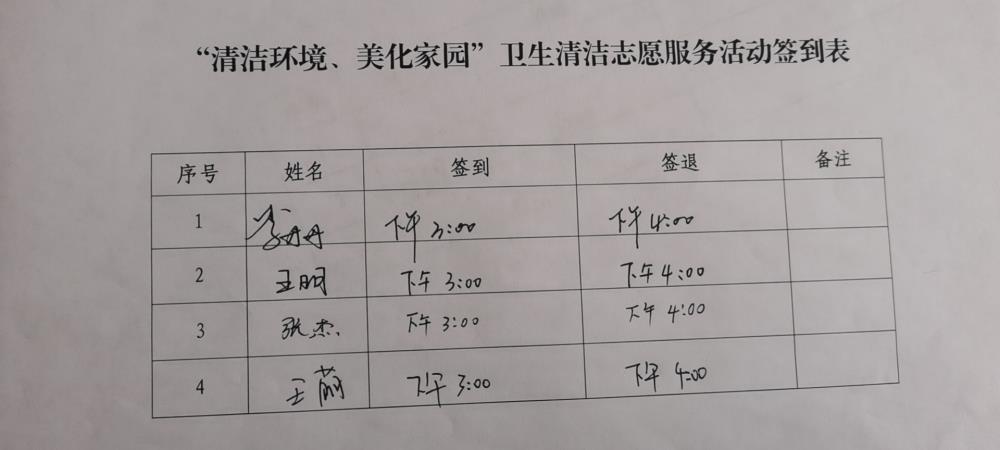 “清洁环境、美化家园”卫生清洁志愿服务活动签到表
序号 姓名 签到 签退 备注
1 李丹丹 下午3:00 下午4:00
2 王明 下午3:00 下午4:00
3 张杰 下午3:00 下午4:00
4 王 下午3:00 下午4:00